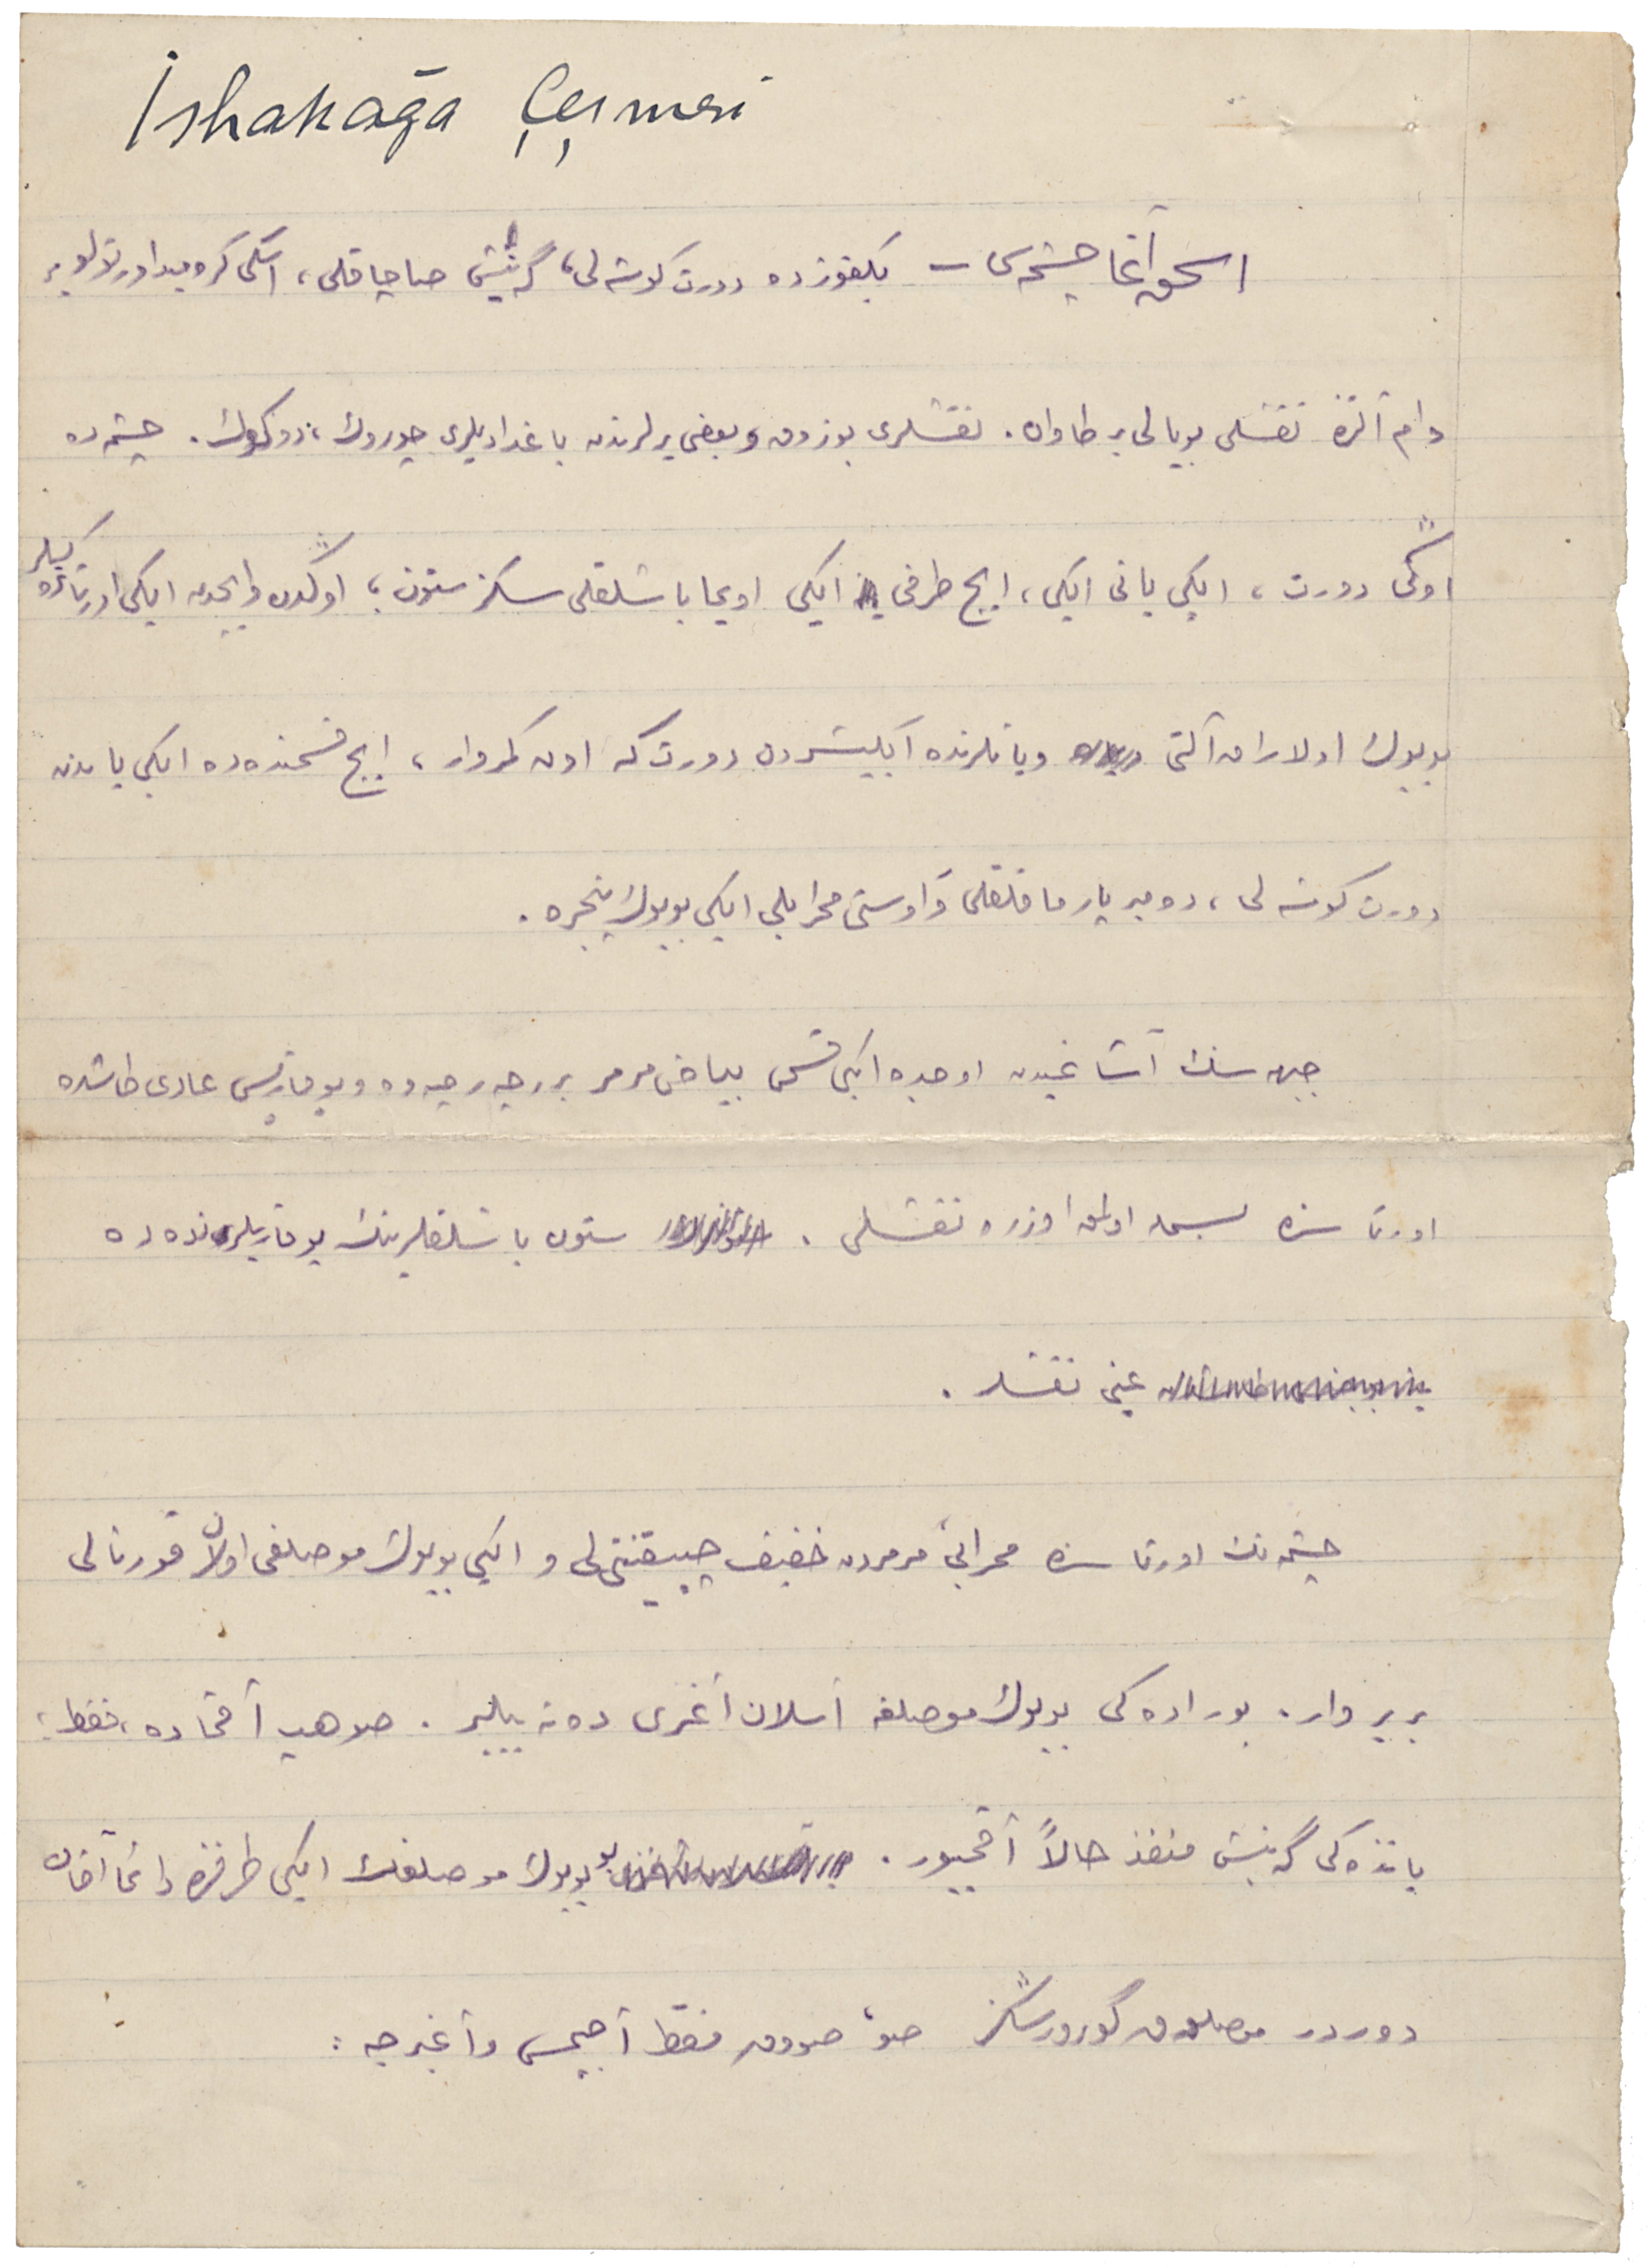 İshakağa Çeşmesi
اسحق آغا چشمه‌سی – بكقوزده دورت كوشه لی، گه‌نیش صاچاقلی، اسكی كره‌میدا اورتولو بر
دام آلتنده نقشلی بویالی بر طاوان. نقشلری بوزوق و بعضی یرلرندن باغدادیلری چوروك، دوكوك. چشمه‌ده
اوڭی دورت، ایكی یانی ایكی، ایچ طرفی ایكی اویما باشلقلی سكز ستون؛ اوڭدن و ایچدن ایكی اورتاده‌كیلر
بویوك اولاراق آلتی و یانلرنده ایكیشردن دورت كه اون كمر وار، ایچ قسمنده ده ایكی یاندن
دورت كوشه لی، دمیر پارماقلقلی و اوستی محرابلی ایكی بویوك پنجره.
جبهه سنك آشاغیدن اوچده ایكی قسمی بیاض مرمر بر درجه‌ده و یوقاریسی عادی طاشده
اورتاسنده بسمله اولمق اوزره نقشلی. ستون باشلقلرینك یوقاریلرنده ده
عینی نقشلر.
چشمه‌نك اورتاسنده محرابی مرمردن خفیف چیقینتی لی و ایكی بویوك موصلغی اولان قورنالی
بر یر وار. بوراده كی بویوك موصلغه آسلان آغزی ده‌نه بیلیر. صو هپ آقماده، فقط،
یاننده كی گه‌نیش منفذ حالاً آقمیور. بو بویوك موصلغك ایكی طرفنده دائما آقان
دوردر موصلوق گورورسڭز صو، صووق فقط آجیمسی و آغیرجه: